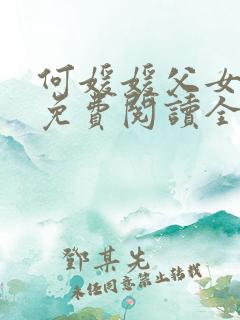 何媛媛父女
免費閱讀全
鄧某先
未经同意禁止转载